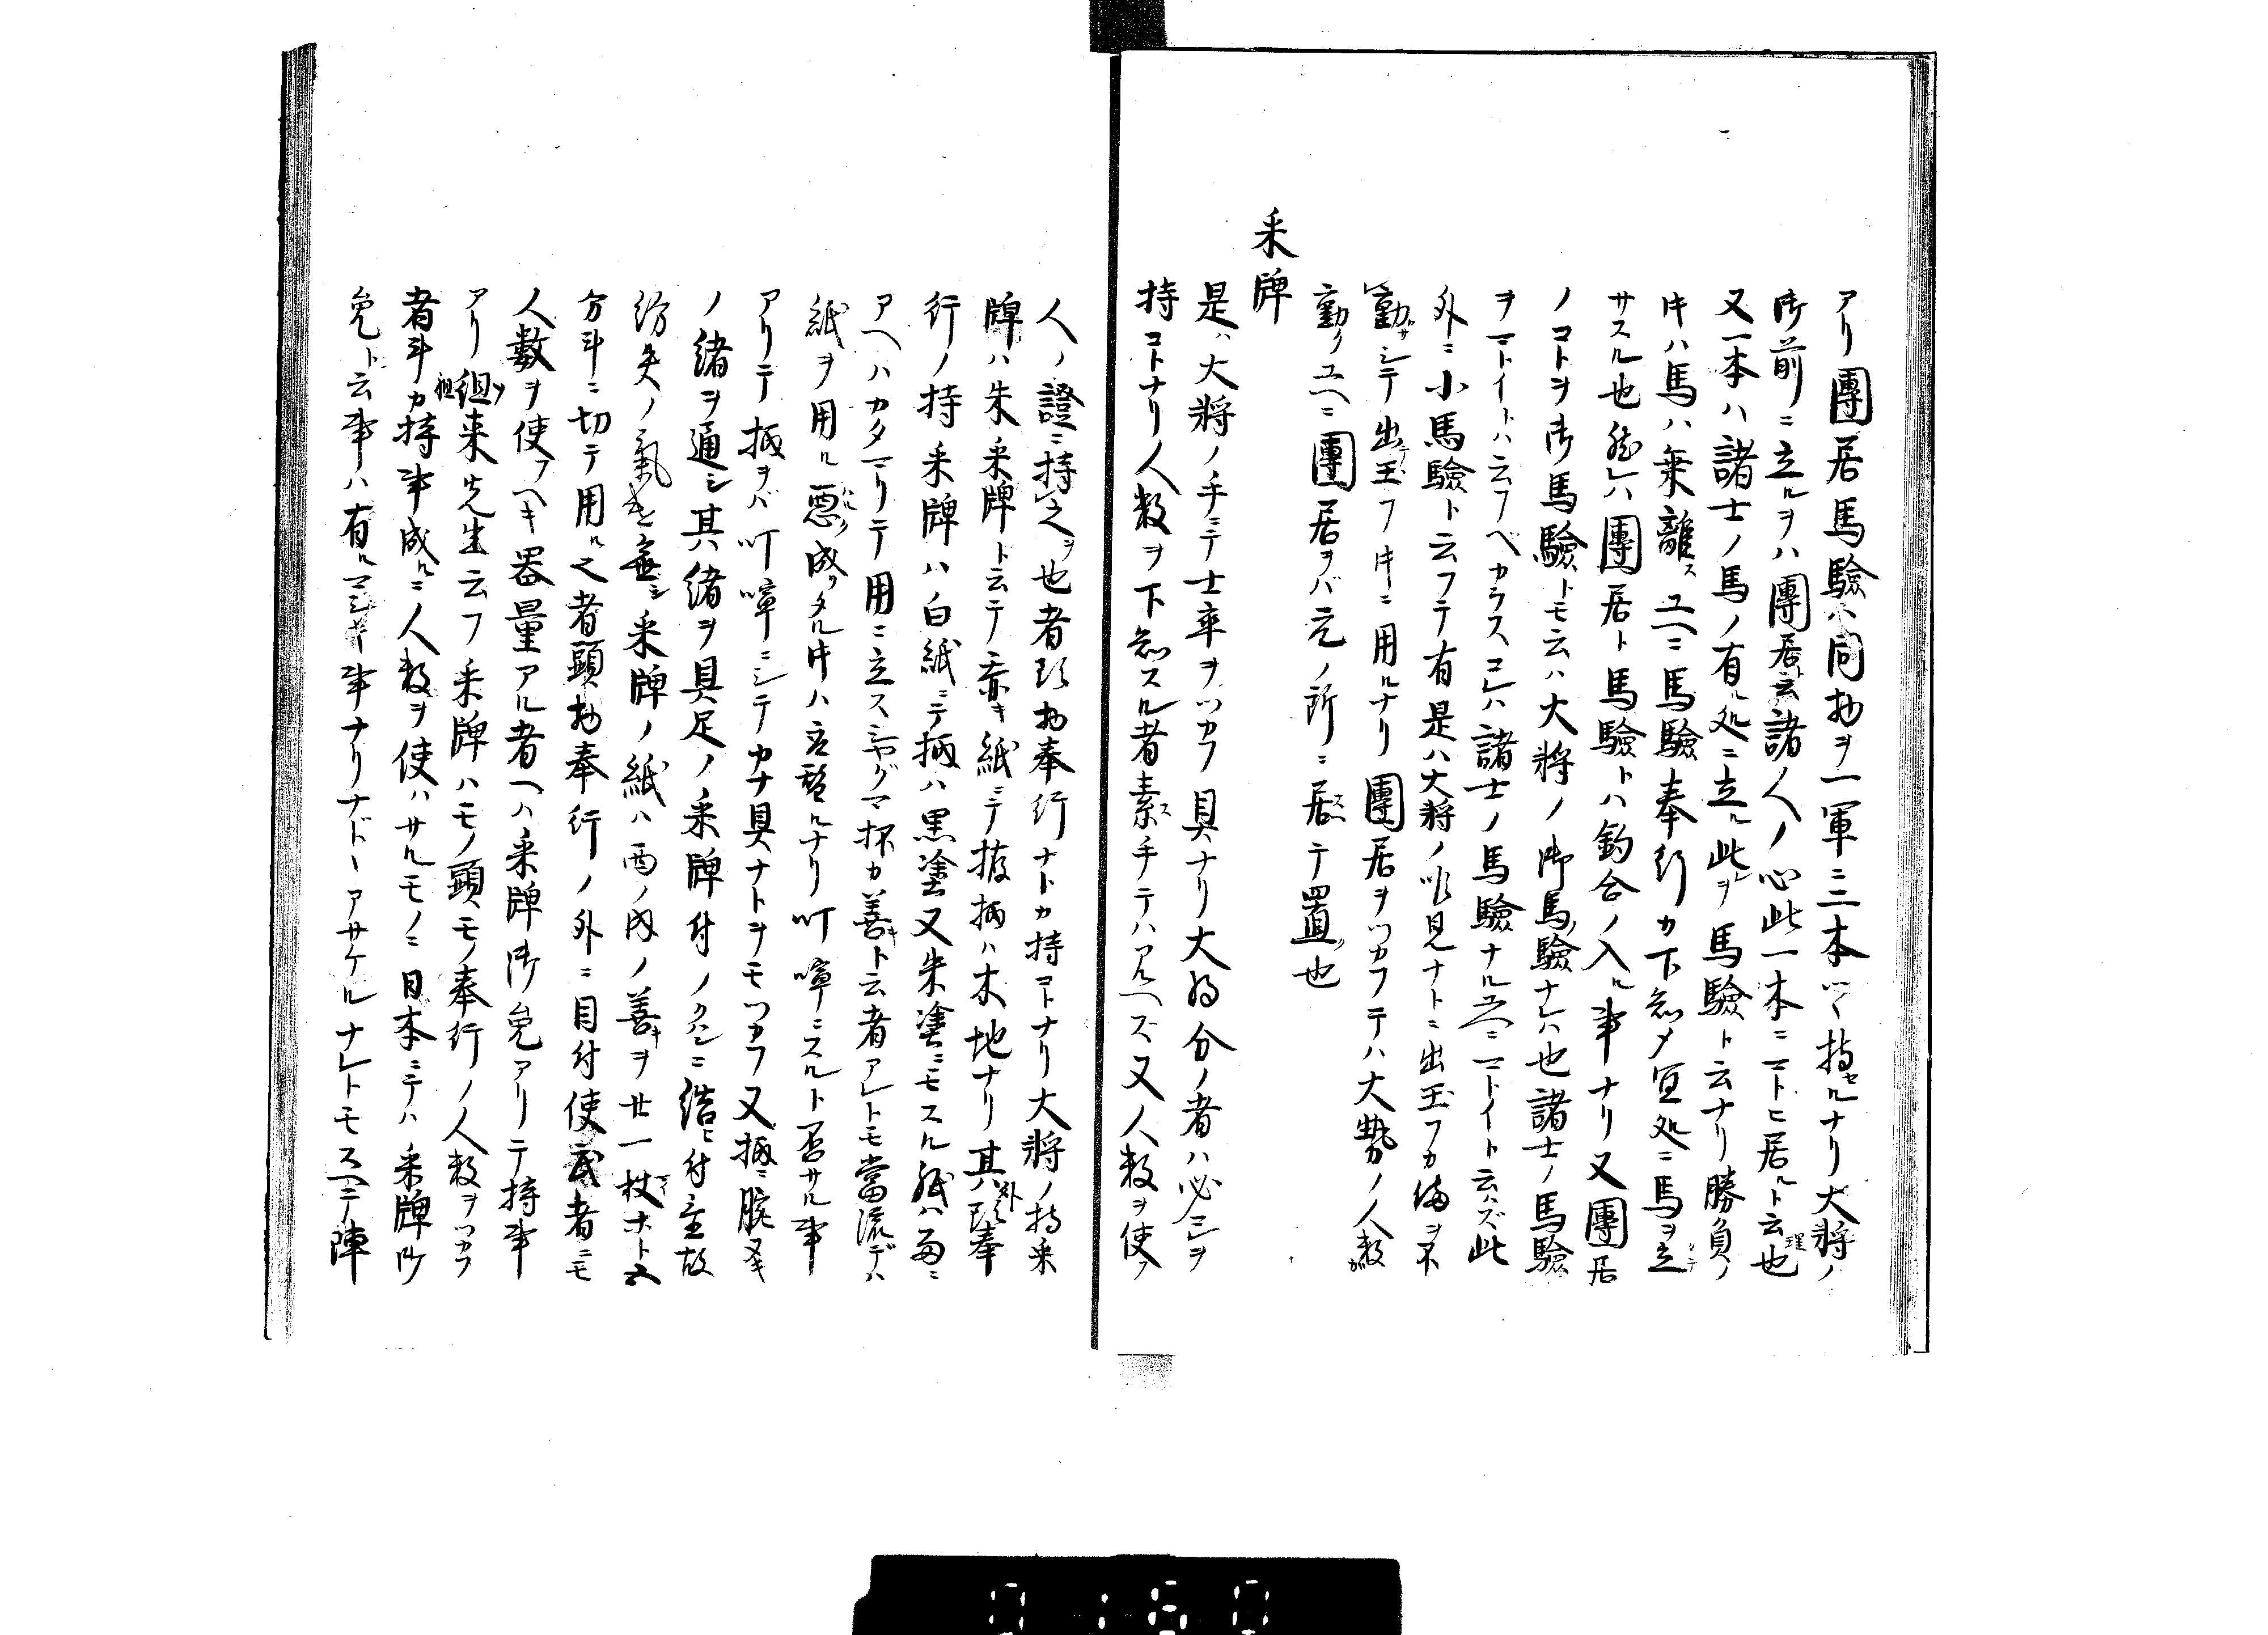 アリ團居馬驗ハ同物ヲ一軍ニ二本ツヽ持セルナリ大將ノ
御前ニ立ルヲハ團居ト云諸人ノ心此一本ニマトヒ居ルト云理也
又一本ハ諸士ノ馬ノ有ル処ニ立ル此ヲ馬驗ト云ナリ勝負ノ
時ハ馬ハ乗離スユヘニ馬驗奉行カ下知メ宜処ニ馬ヲ立
サスル也然レハ團居ト馬驗トハ釣合ノ入ル事ナリ又團居
ノコトヲ御馬驗トモ云ハ大將ノ御馬驗ナレハ也諸士ノ馬驗
ヲマトイトハ云フベカラスコレハ諸士ノ馬驗ナルユヘニマトイト云ハズ此
外ニ小馬驗ト云フテ有是ハ大將ノ物見ナトニ出玉フカ備ヲ不
動シテ出玉フ時ニ用ルナリ團居ヲツカフテハ大勢ノ人數カ
動クユヘニ團居ヲバ元ノ所ニ居テ置ク也
采牌
是ハ大將ノ手ニテ士卒ヲツカフ具ナリ大將分ノ者ハ必コレヲ
持コトナリ人数ヲ下知スル者素手テハアルヘズ又人数ヲ使フ
人ノ證ニ持之ヲ也者頭物奉行ナトカ持コトナリ大將ノ持采
牌ハ朱采牌ト云テ赤キ紙ニテ捘柄ハ木地ナリ其外頭奉
行ノ持采牌ハ白紙ニテ柄ハ黒塗又朱塗ニモスル紙ハ雨ニ
アヘハカタマリテ用ニ立スシヤグマ抔カ善キト云者アレトモ當流デハ
紙ヲ用ル悪ク成リタル時ハ立替ルナリ叮嚀ニスルト否サル事
アリテ柄ヲバ叮嚀ニシテカナ具ナトヲモツカフ又柄ニ腕ヌキ
ノ緒ヲ通シ其緒ヲ具足ノ采牌付ノクハンニ結ヒ付置故
紛失ノ氣遣無シ采牌ノ紙ハ西ノ内ノ善キヲ廿一枚ホト五
分斗ニ切テ用ル之者頭物奉行ノ外ニ目付使武者ニモ
人數ヲ使フヘキ器量アル者ヘハ采牌御免アリテ持事
アリ徂来先生云フ采牌ハモノ頭モノ奉行ノ人数ヲツカフ
者斗カ持事成ルニ人数ヲ使ハサルモノニ日本ニテハ采牌御
免ト云事ハ有ルマシキ事ナリナドヽアサケルナレトモスヘテ陣